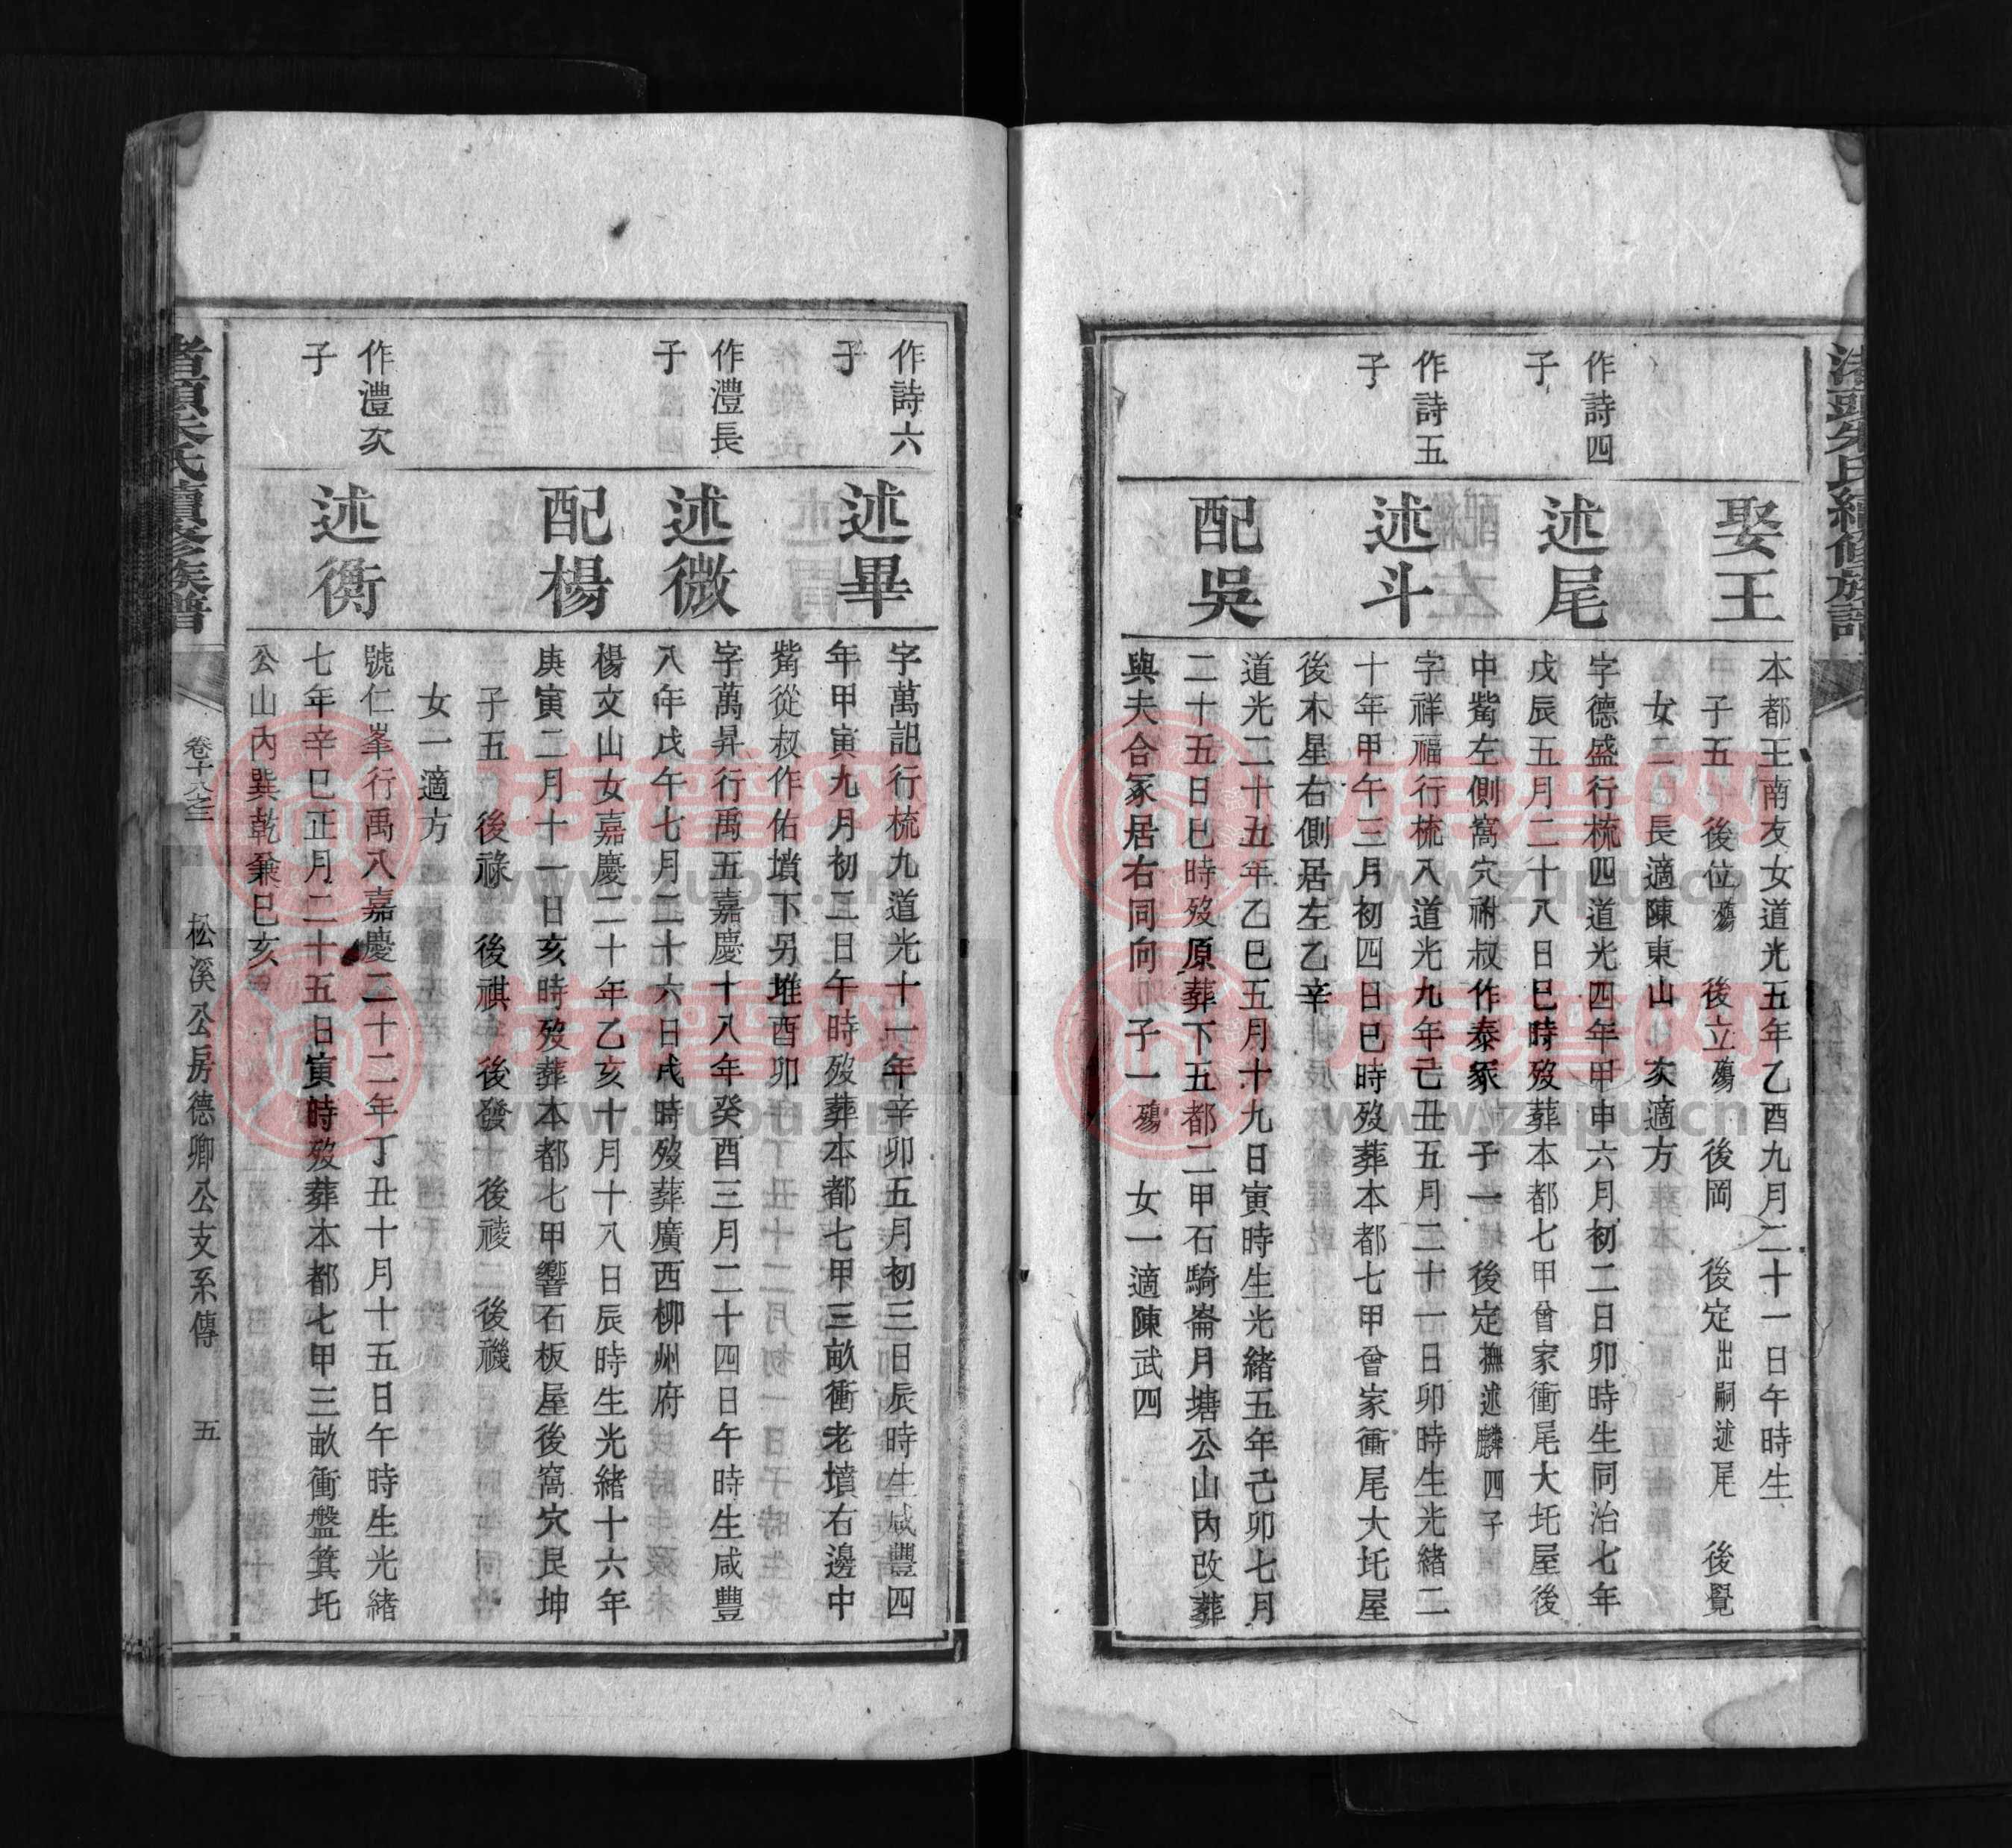 渚頭朱氏續修族譜
娶王
本都王南友女道光五年乙酉九月二十一日午時生
子五　後位殤　後立殤　後岡　後定出嗣述尾　後覺
女二　長適陳東山　次適方
作詩四
子
述尾
字德盛行梳四道光四年甲申六月初二日卯時生同治七年
戊辰五月二十八日巳時歿葬本都七甲曾家衝尾大坉屋後
中觜左側窩穴祔叔作泰冢　子一　後定撫述麟四子
作詩五
子
述斗
字祥福行梳八道光九年己丑五月二十一日卯時生光緒二
十年甲午三月初四日巳時歿葬本都七甲曾家衝尾大坉屋
後木星右側居左乙辛
配吳
道光二十五年乙巳五月十九日寅時生光緒五年己卯七月
二十五日巳時歿原葬下五都二甲石騎崙月塘公山內改葬
與夫合冢居右同向　子一殤　女一適陳武四
作詩六
子
述畢
字萬記行梳九道光十一年辛卯五月初三日辰時生咸豐四
年甲寅九月初三日午時歿葬本都七甲三畝衝老墳右邊中
觜從叔作佑墳下另堆酉卯
作澧長
子
述微
字萬昇行禹五嘉慶十八年癸酉三月二十四日午時生咸豐
八年戊午七月二十六日戌時歿葬廣西柳州府
配楊
楊文山女嘉慶二十年乙亥十月十八日辰時生光緒十六年
庚寅二月十一日亥時歿葬本都七甲響石板屋後窩穴艮坤
子五　後祿　後祺　後發　後祾　後禨
女一適方
作澧次
子
述衡
號仁峯行禹八嘉慶二十二年丁丑十月十五日午時生光緒
七年辛巳正月二十五日寅時歿葬本都七甲三畝衝盤箕坉
公山內巽乾兼巳亥
渚頭朱氏續修族譜
卷十八之三
松溪公房德卿公支系傳
五
族譜网
www.zupu.cn
族譜网
www.zupu.cn
族譜网
www.zupu.cn
族譜网
www.zupu.cn